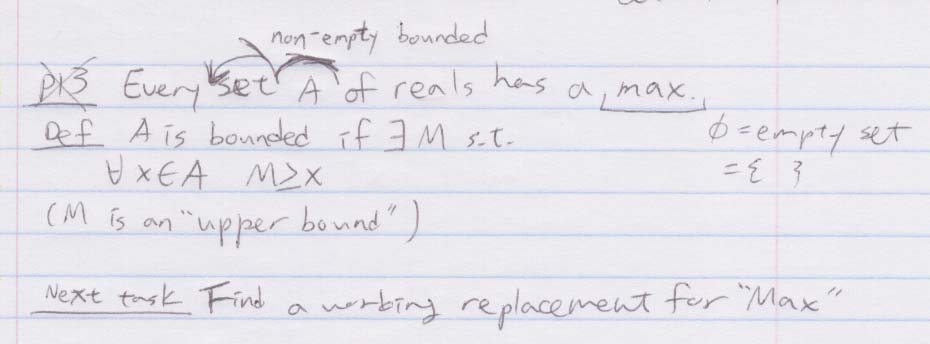 non-empty bounded
P13 Every set A of reals has a max.
Def A is bounded if ∃ M s.t.
∀ x ∈ A M ≥ x
(M is an "upper bound")
∅ = empty set
= { }
Next task Find a working replacement for "Max"